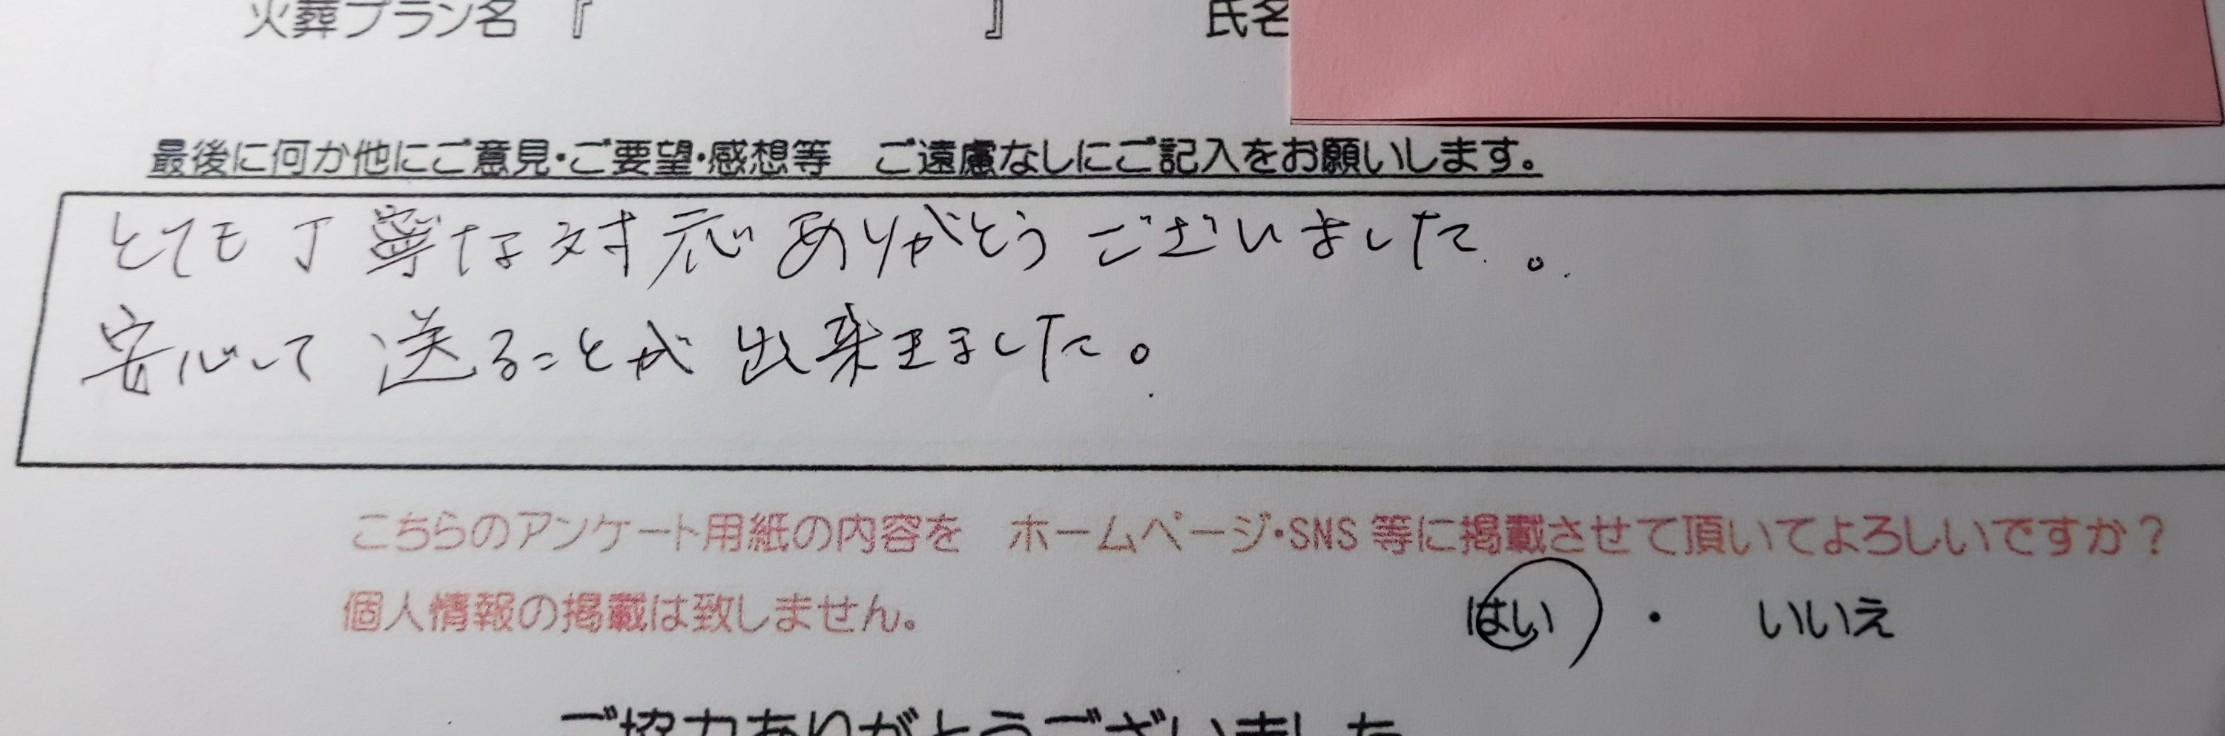 火葬プラン名 『 』 氏名
最後に何か他にご意見・ご要望・感想等 ご遠慮なしにご記入をお願いします。
とても丁寧な対応ありがとうございました。
安心して送ることが出来ました。
こちらのアンケート用紙の内容を ホームページ・SNS 等に掲載させて頂いてよろしいですか？
個人情報の掲載は致しません。
はい ・ いいえ
ご協力ありがとうございました